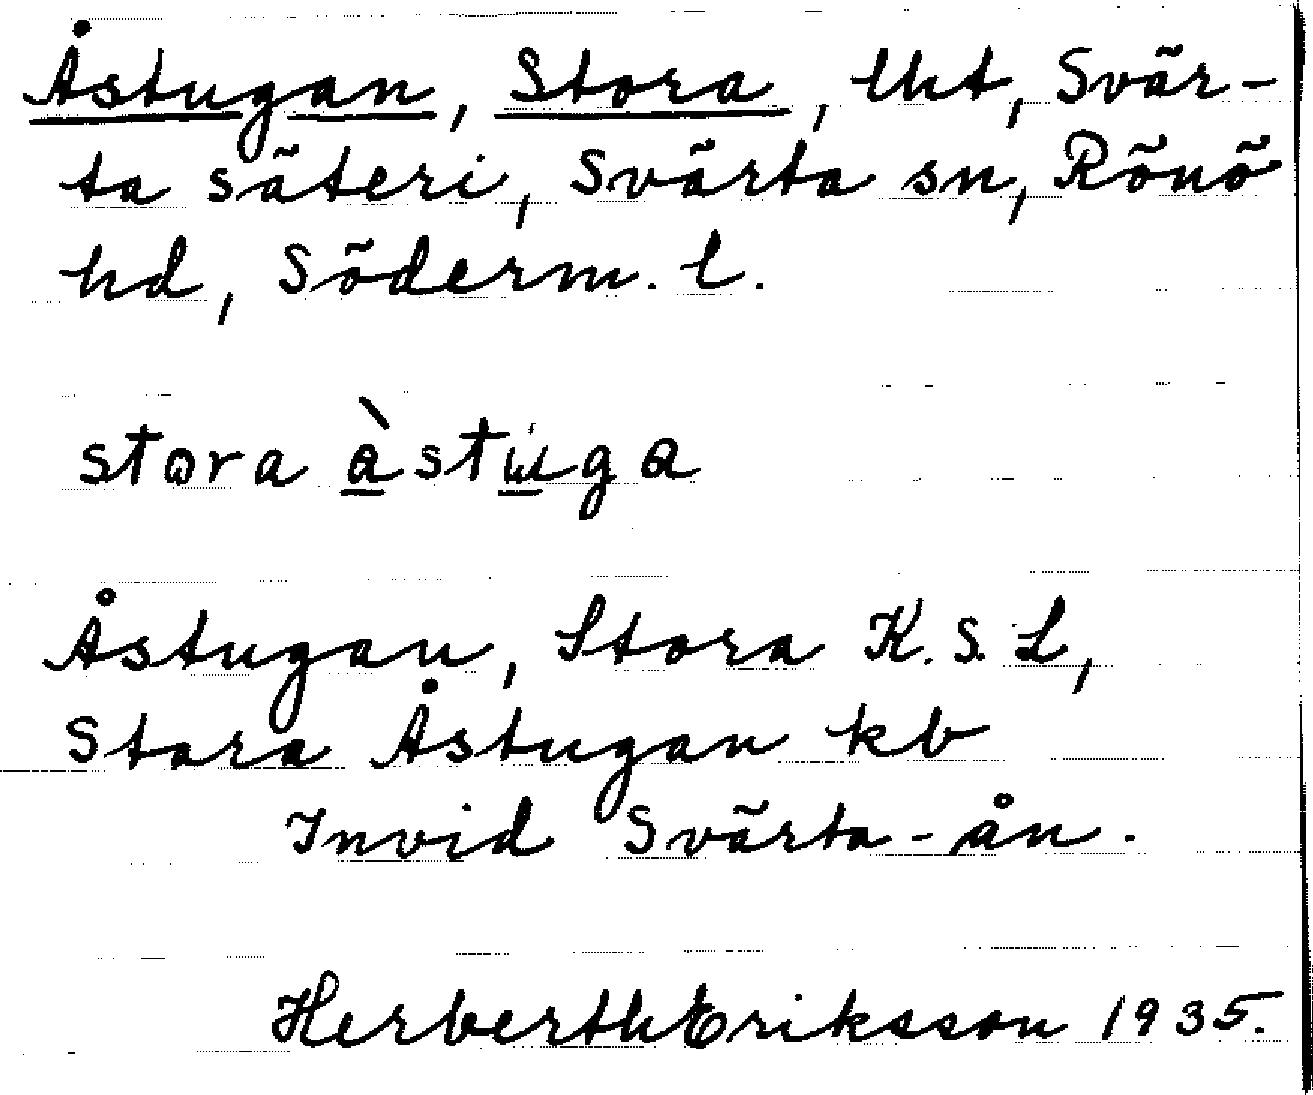 Åstugan, Stora, lht, Svär-
ta säteri, Svärta sn, Rönö
hd, Söderm. l.
stora àstuga
Åstugan, Stora K. S. L,
Stora Åstugan kb
Invid Svärta-ån.
Herberth Eriksson 1935.